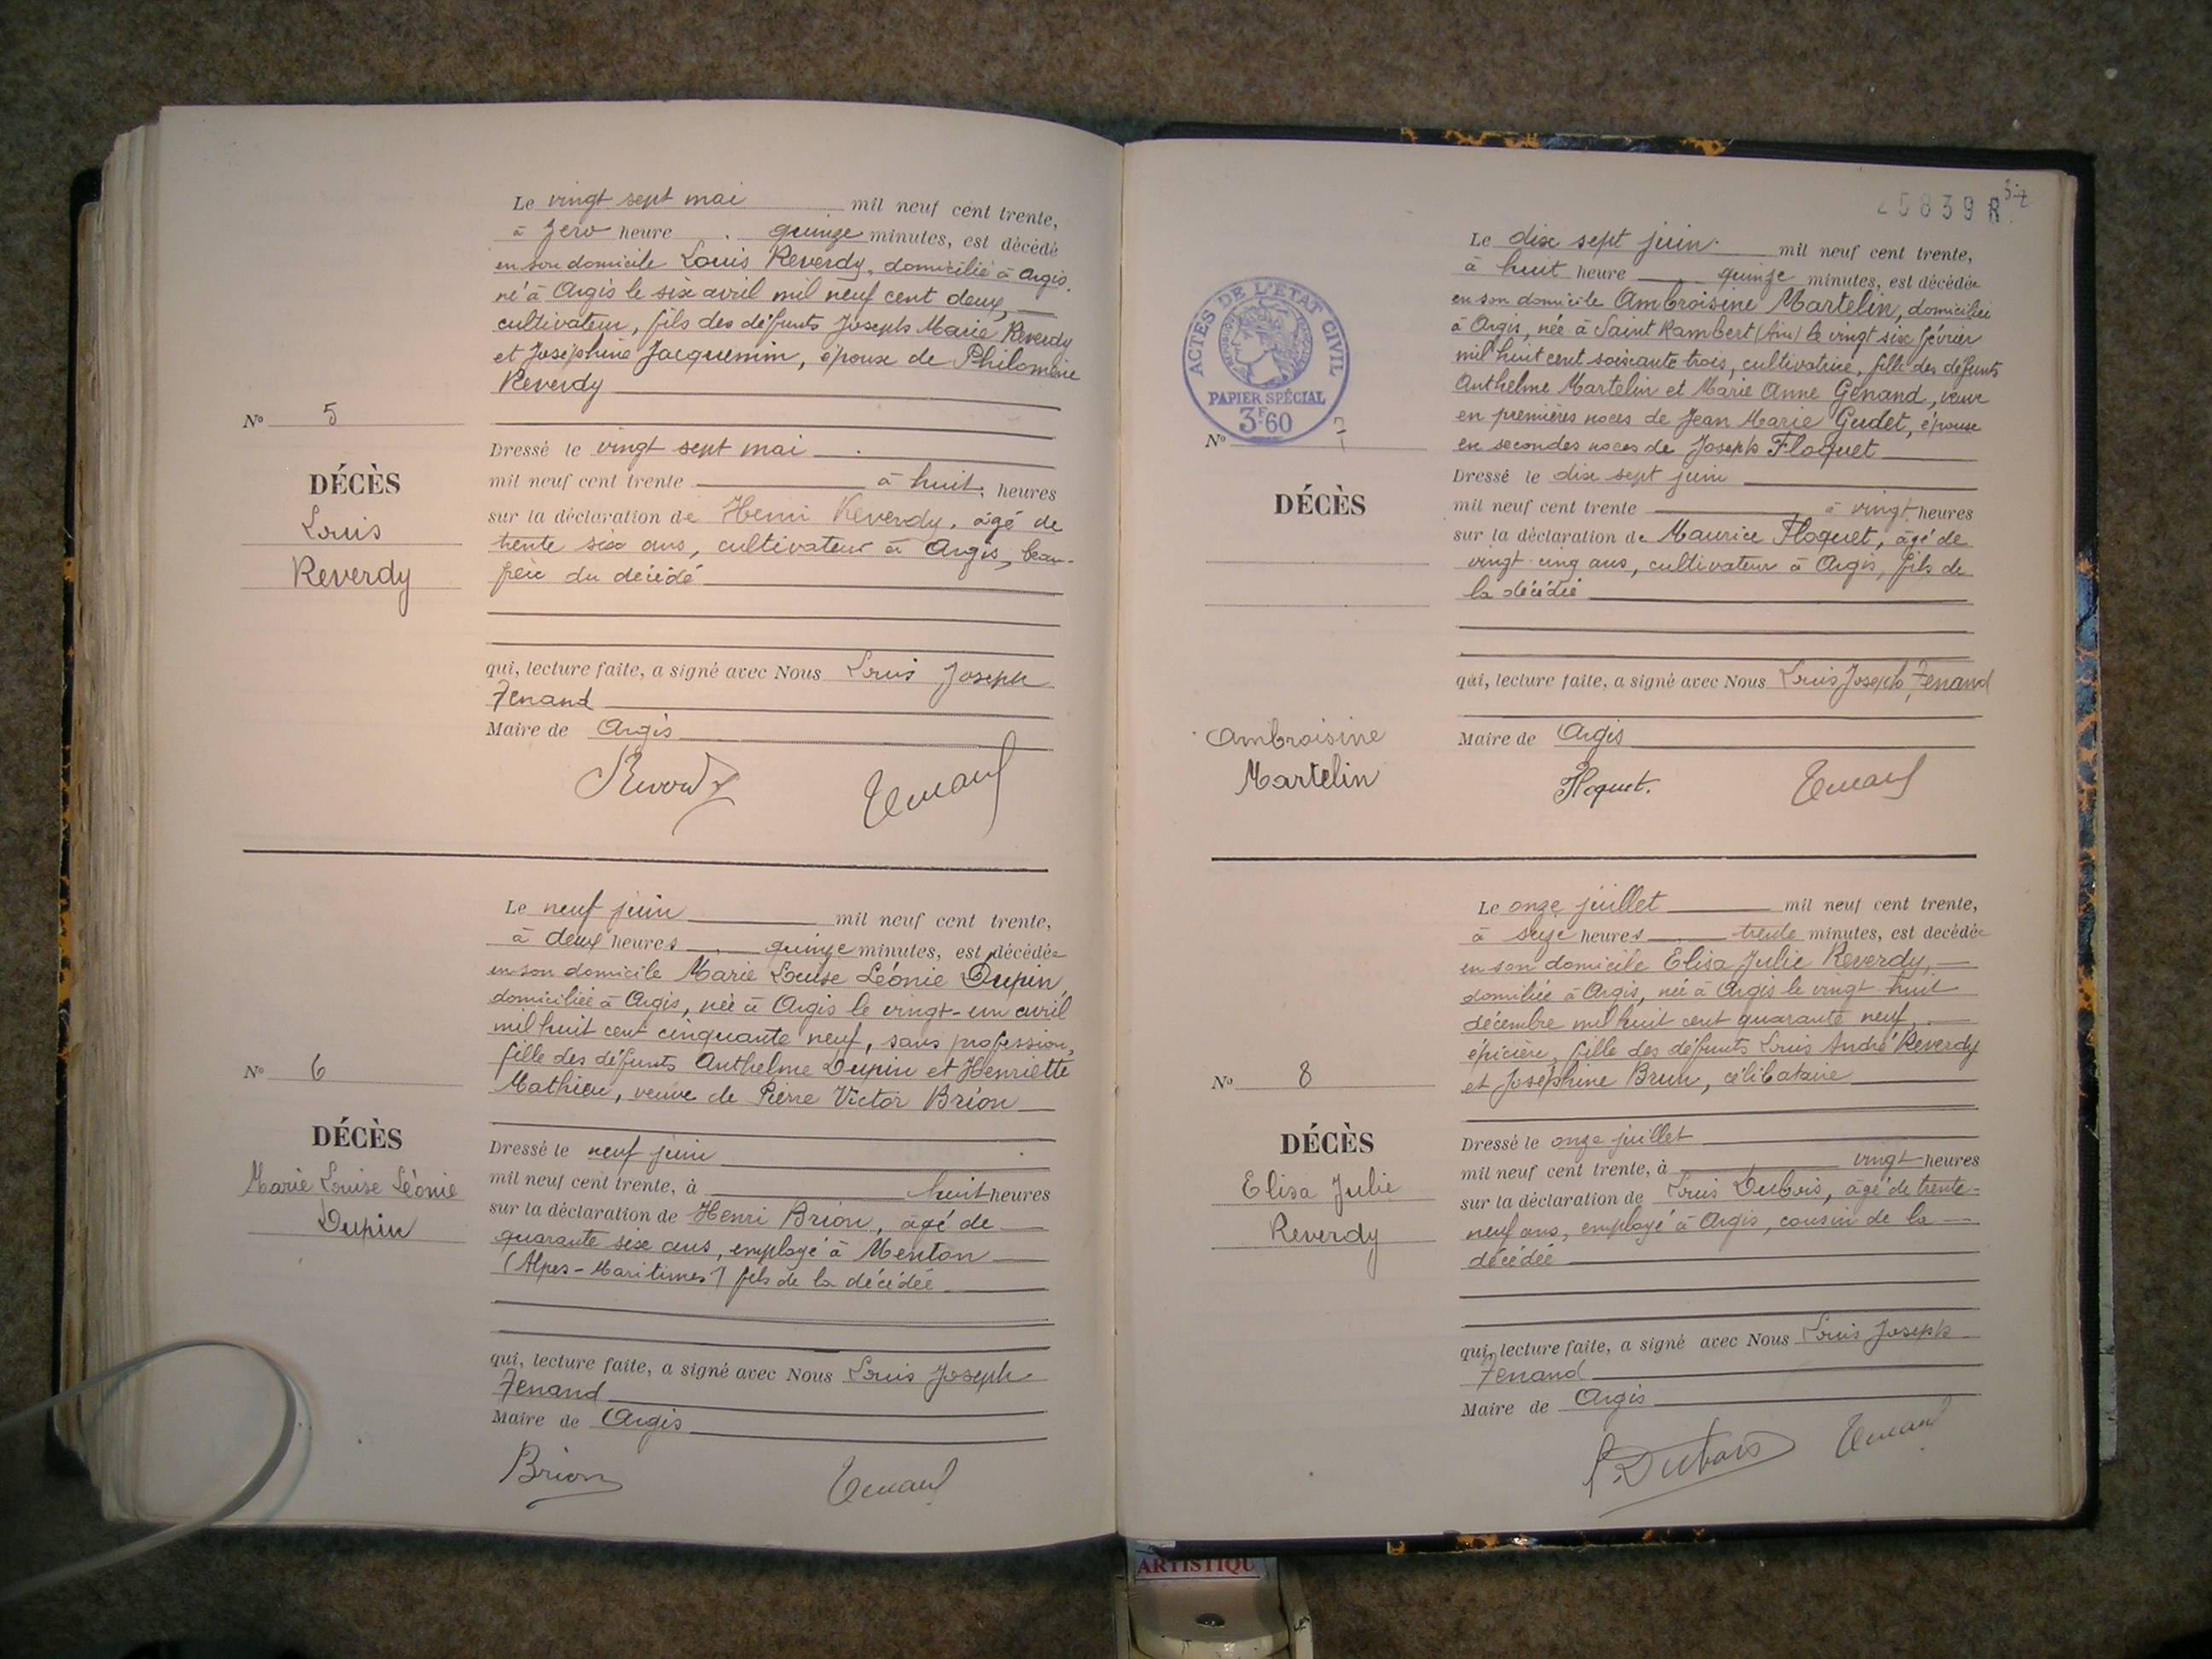 Le vingt sept mai mil neuf cent trente,
à zero heure quinze minutes, est décédé
en son domicile Louis Reverdy, domicilié à Argis,
né à Argis le six avril mil neuf cent deux,
cultivateur, fils des défunts Joseph Marie Reverdy
et Joséphine Jacquemin, époux de Philomène
Reverdy
N° 5
Dressé le vingt sept mai
mil neuf cent trente à huit heures
DÉCÈS
sur la déclaration de Henri Reverdy, âgé de
Louis
trente six ans, cultivateur à Argis, beau-
Reverdy
père du décédé
qui, lecture faite, a signé avec Nous Louis Joseph
Tenand
Maire de Argis
Reverdy Tenand
Le neuf juin mil neuf cent trente,
à deux heures quinze minutes, est décédée
en son domicile Marie Louise Léonie Dupin,
domiciliée à Argis, née à Argis le vingt-un avril
mil huit cent cinquante neuf, sans profession,
fille des défunts Anthelme Dupin et Henriette
N° 6
Mathieu, veuve de Pierre Victor Brion
DÉCÈS
Dressé le neuf juin
Marie Louise Léonie
mil neuf cent trente, à huit heures
Dupin
sur la déclaration de Henri Brion, âgé de
quarante six ans, employé à Menton
(Alpes-Maritimes) fils de la décédée
qui, lecture faite, a signé avec Nous Louis Joseph
Tenand
Maire de Argis
Brion Tenand
25839 R
Le dix sept juin mil neuf cent trente,
à huit heure quinze minutes, est décédée
en son domicile Ambroisine Martelin, domiciliée
à Argis, née à Saint Rambert (Ain) le vingt six février
mil huit cent soixante trois, cultivatrice, fille des défunts
Anthelme Martelin et Marie Anne Génand, veuve
en premières noces de Jean Marie Gudet, épouse
en secondes noces de Joseph Floquet
ACTES DE L'ETAT CIVIL
REPUBLIQUE FRANÇAISE
PAPIER SPÉCIAL
3F60
N° 7
Dressé le dix sept juin
DÉCÈS
mil neuf cent trente à vingt heures
sur la déclaration de Maurice Floquet, âgé de
vingt cinq ans, cultivateur à Argis, fils de
la décédée
qui, lecture faite, a signé avec Nous Louis Joseph Tenand
Ambroisine
Maire de Argis
Martelin
Floquet. Tenand
Le onze juillet mil neuf cent trente,
à seize heures trente minutes, est décédée
en son domicile Elisa Julie Reverdy,
domiliée à Argis, née à Argis le vingt huit
décembre mil huit cent quarante neuf,
épicière, fille des défunts Louis André Reverdy
N° 8
et Joséphine Brun, célibataire
DÉCÈS
Dressé le onze juillet
mil neuf cent trente, à vingt heures
Elisa Julie
sur la déclaration de Louis Dubois, âgé de trente-
Reverdy
neuf ans, employé à Argis, cousin de la
décédée
qui, lecture faite, a signé avec Nous Louis Joseph
Tenand
Maire de Argis
L Dubois Tenand
ARTISTIQU